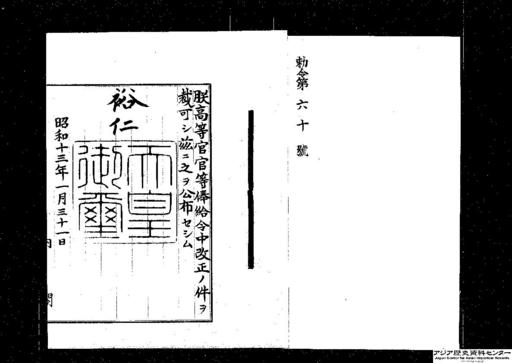 勅令第六十號
朕高等官官等俸給令中改正ノ件ヲ
裁可シ茲ニ之ヲ公布セシム
裕仁
天皇
御璽
昭和十三年一月三十一日
内閣
アジア歴史資料センター
Japan Center for Asian Historical Records